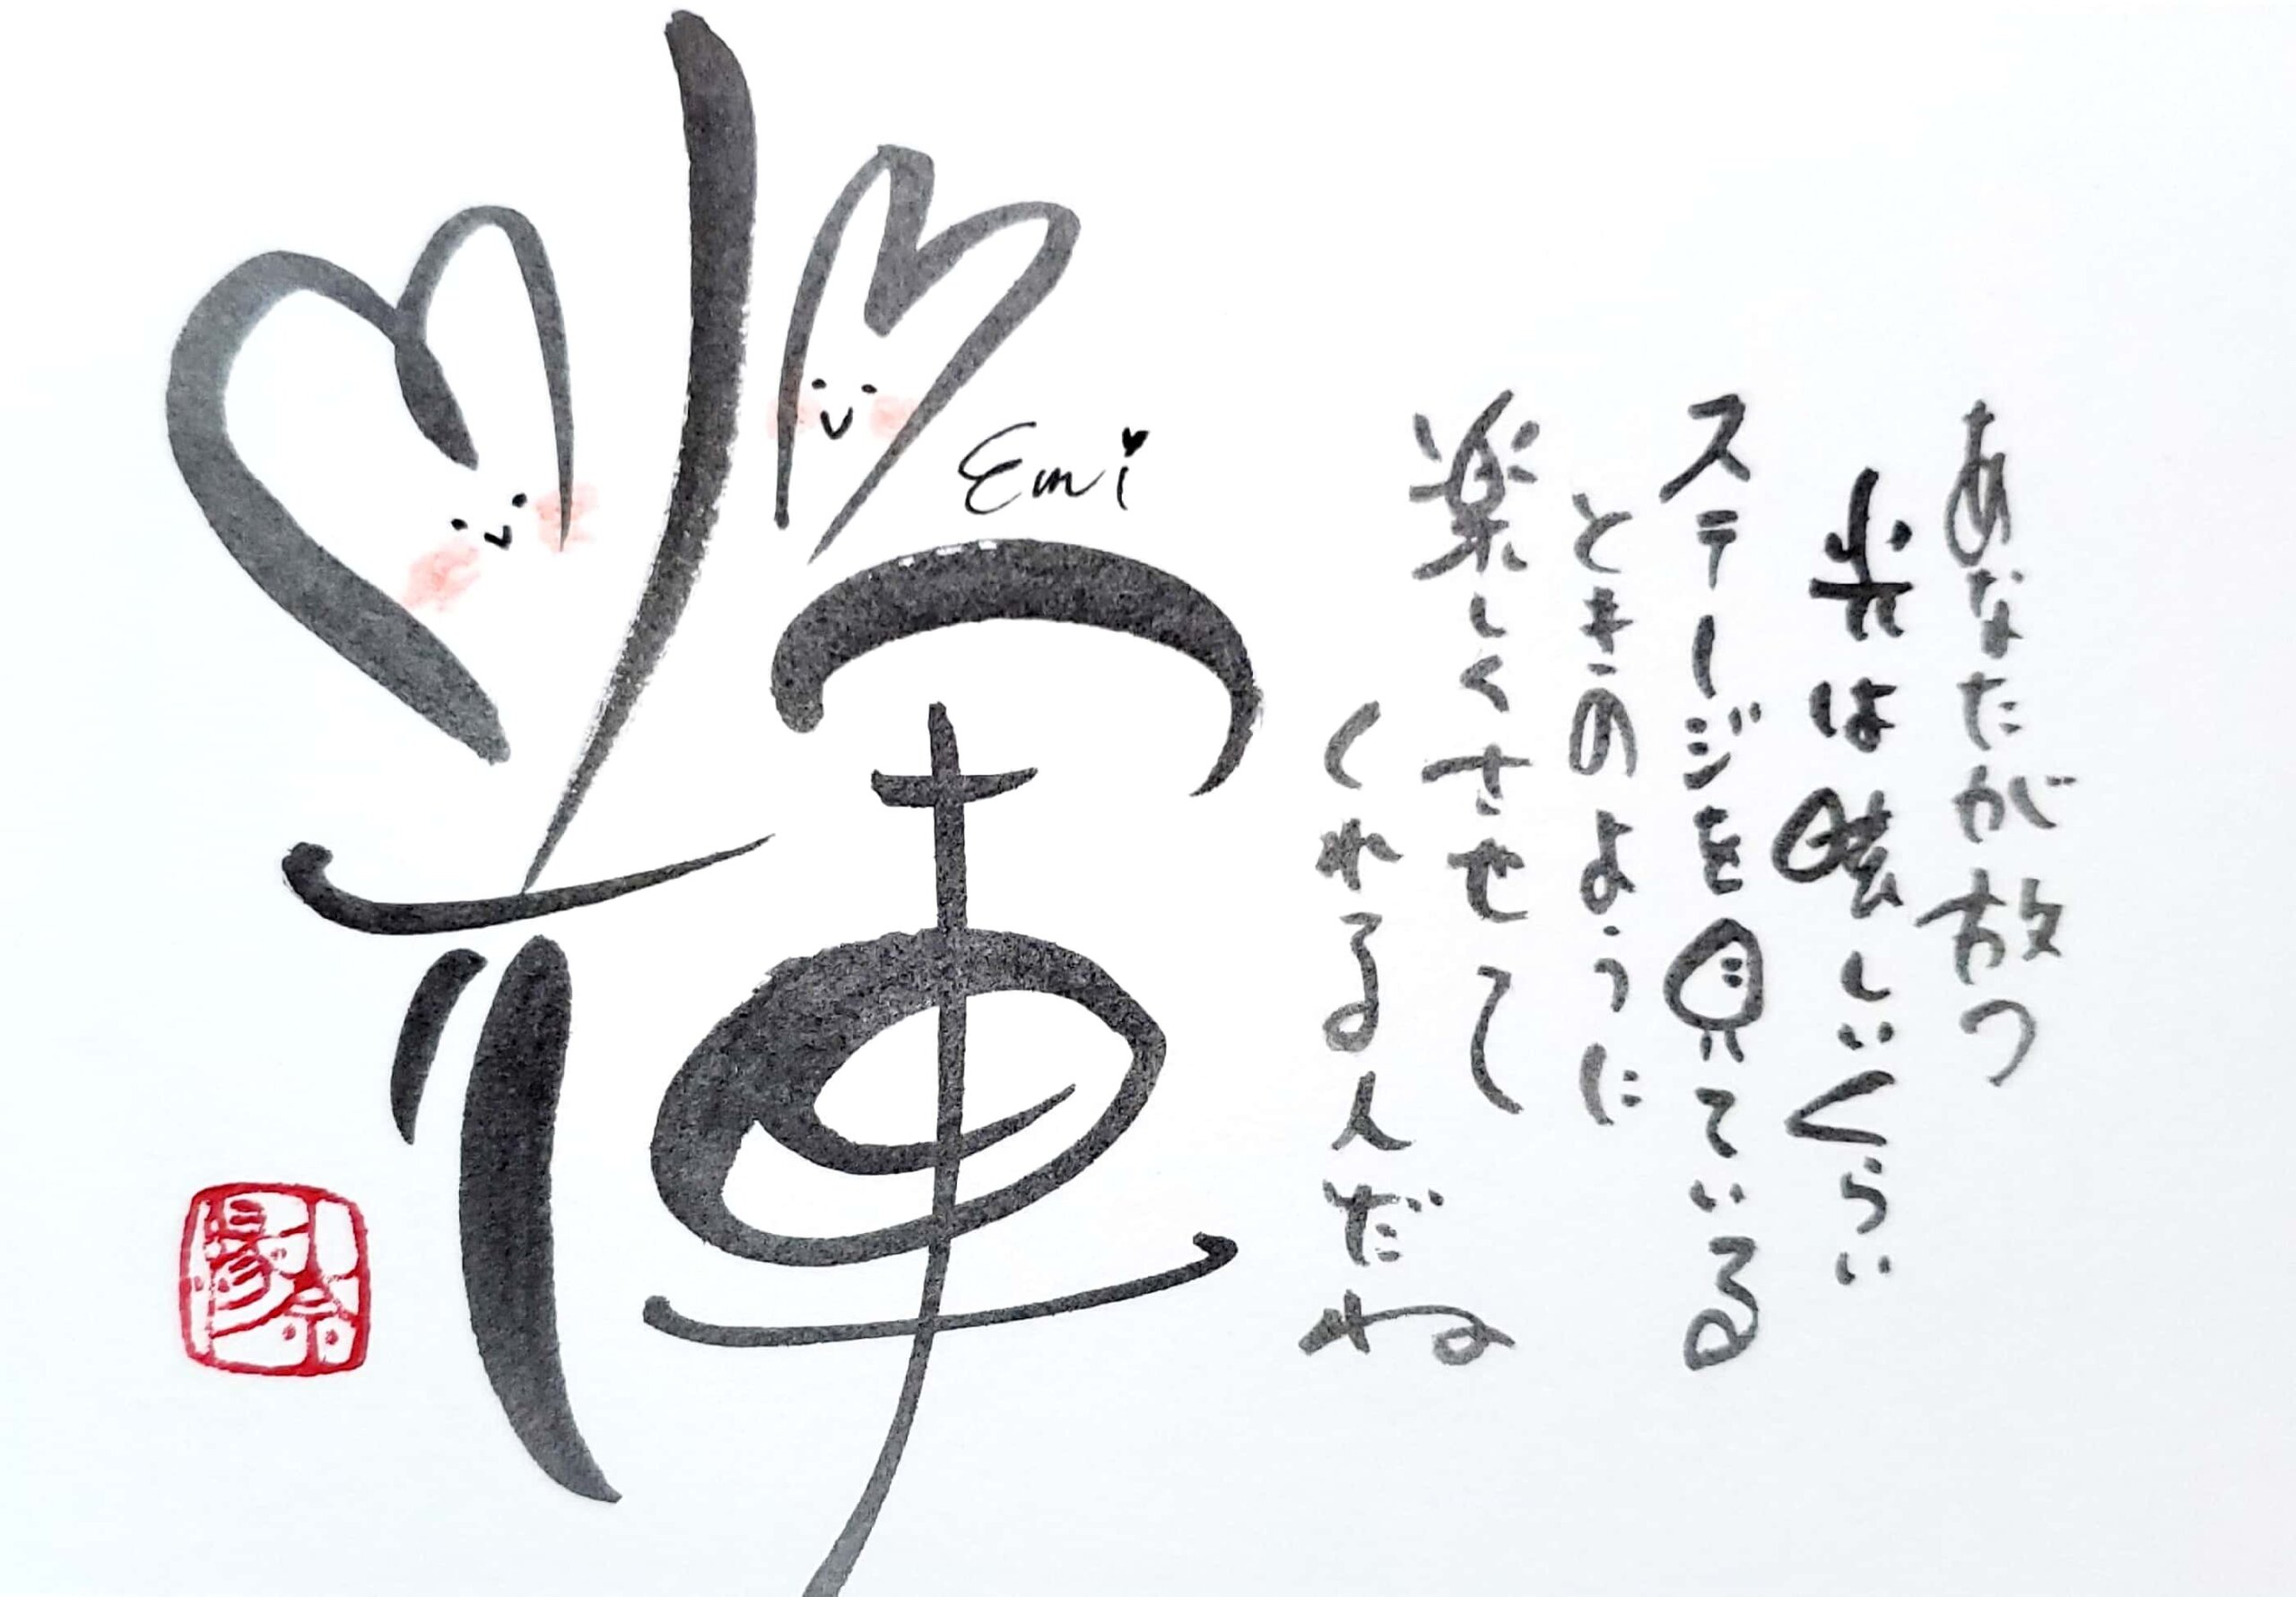 あなたが放つ
光は眩しいくらい
ステージを見ている
ときのように
楽しくさせて
くれるんだね
輝
Emi